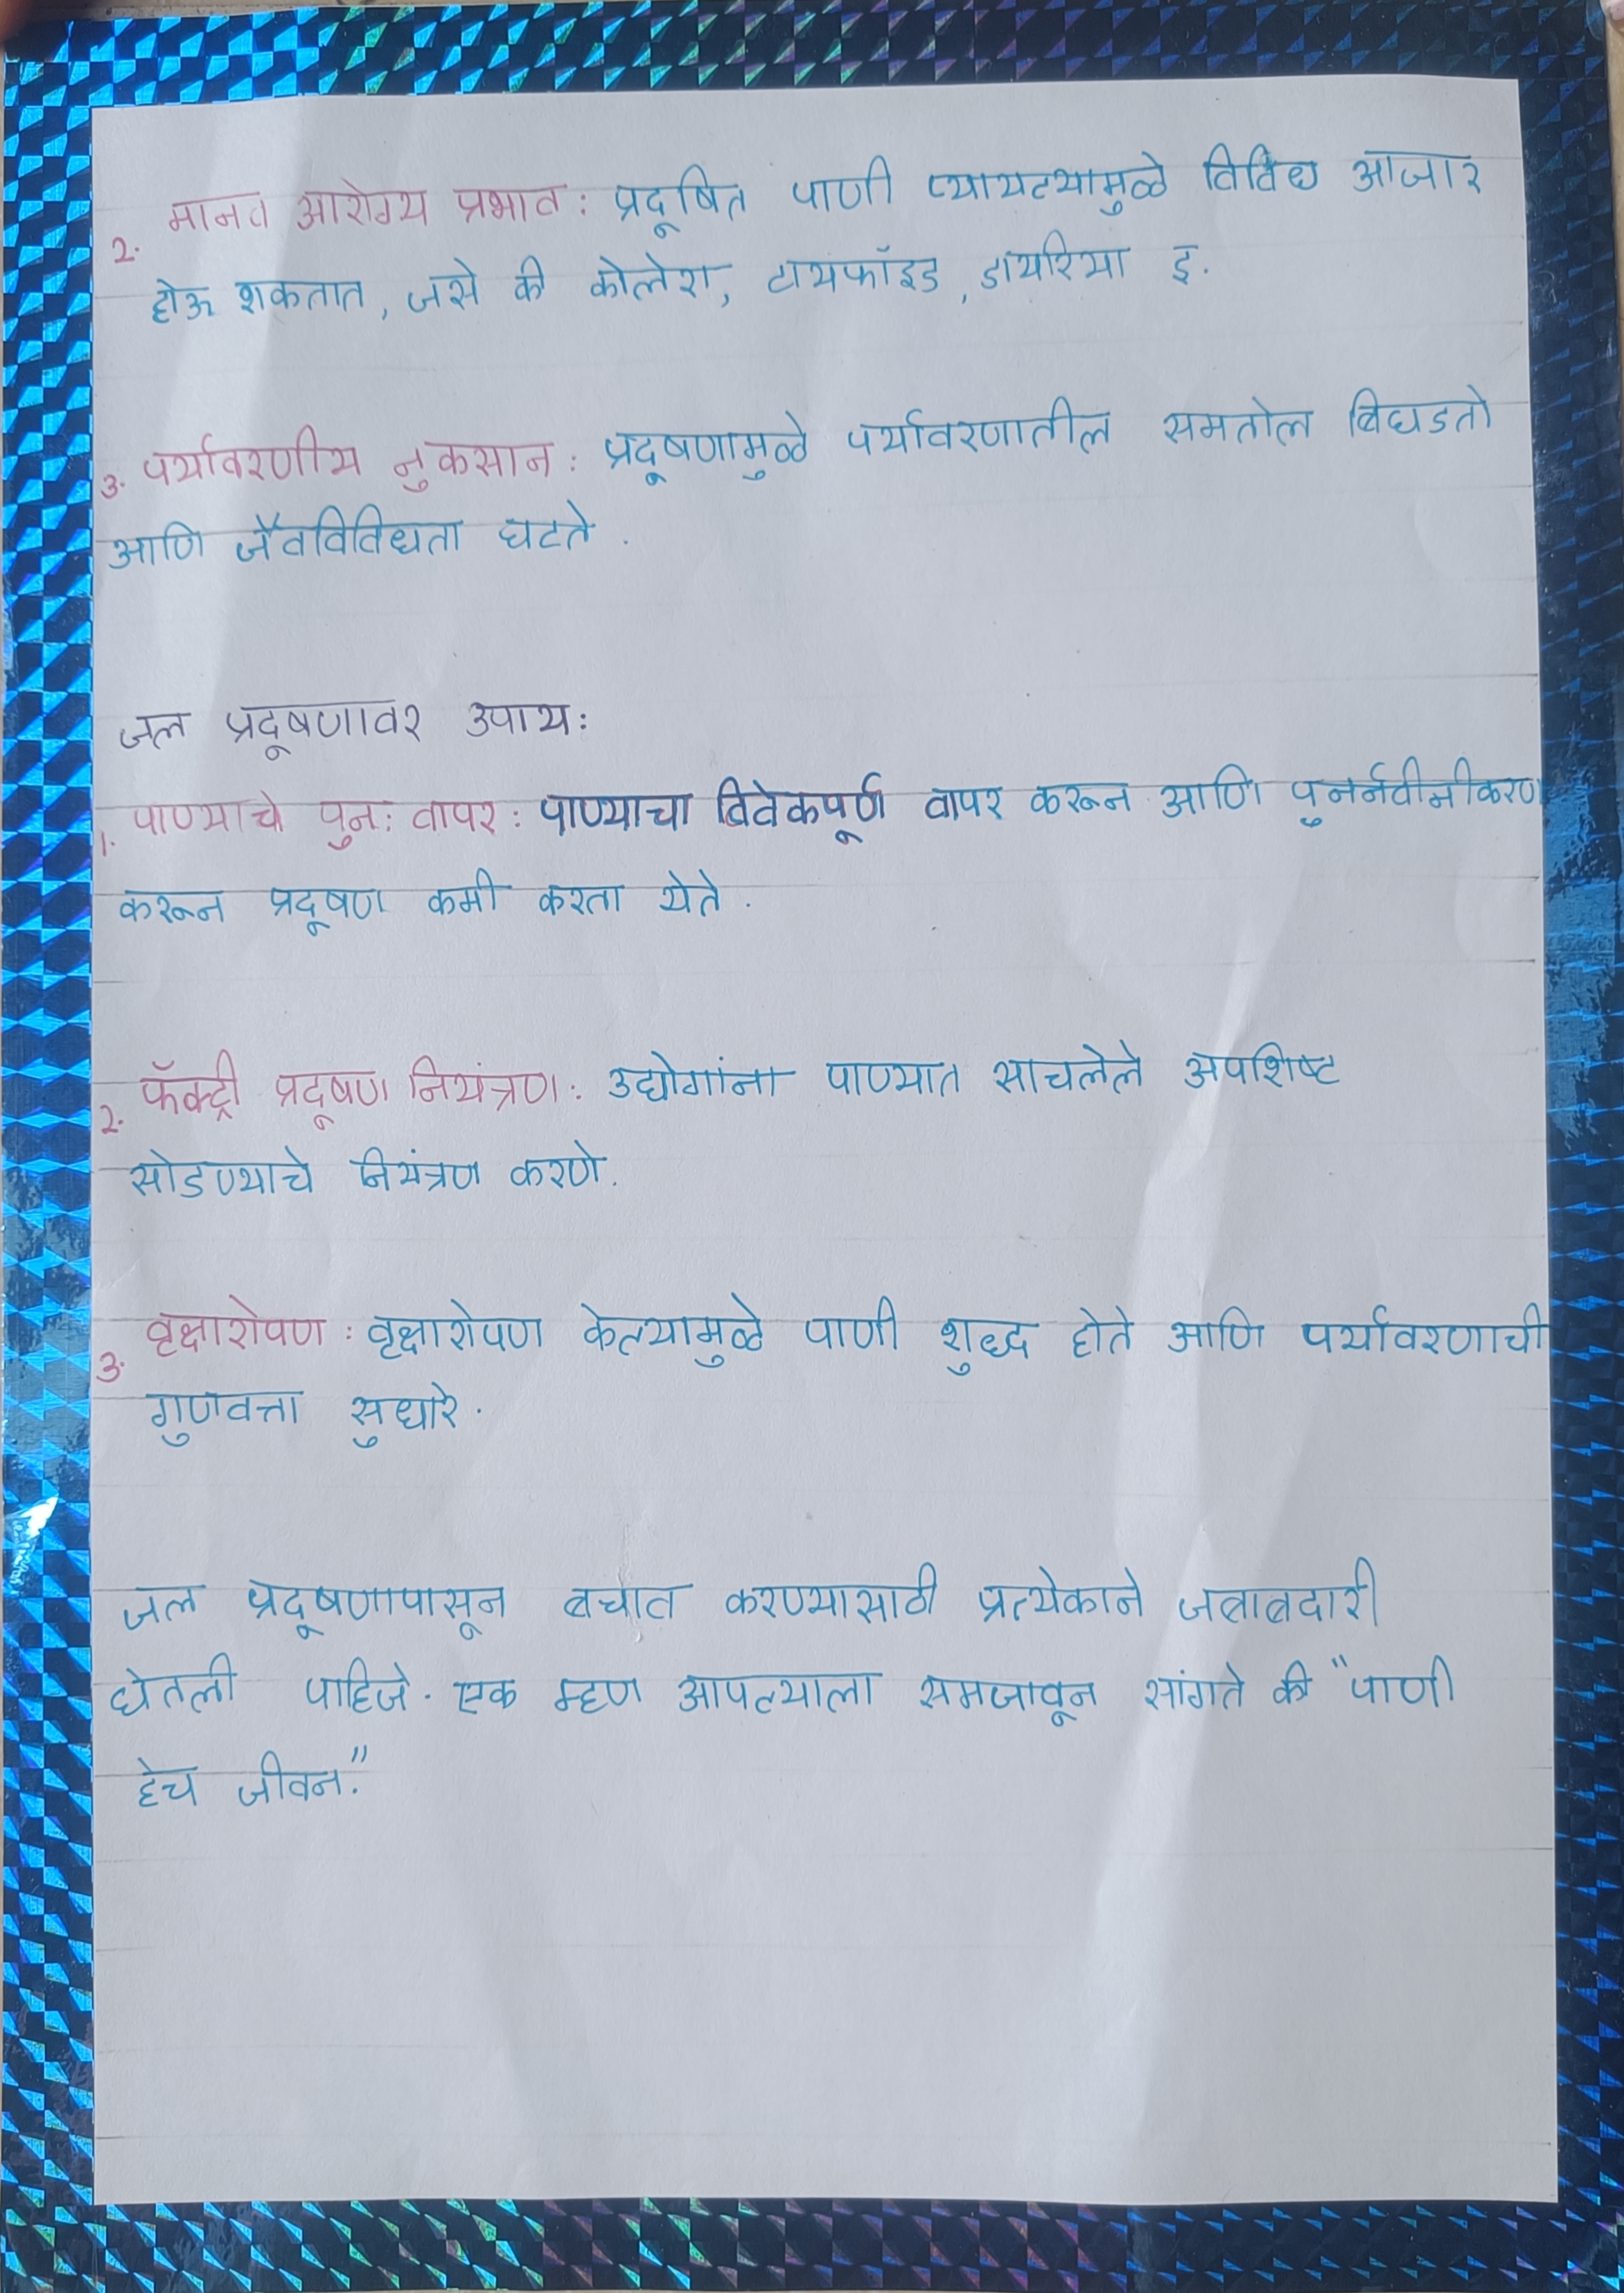 2. मानव आरोग्य प्रभाव : प्रदूषित पाणी प्यायल्यामुळे विविध आजार
होऊ शकतात, जसे की कोलेरा, टायफॉइड, डायरिया इ.
3. पर्यावरणीय नुकसान : प्रदूषणामुळे पर्यावरणातील समतोल बिघडतो
आणि जैवविविधता घटते.
जल प्रदूषणावर उपाय :
1. पाण्याचे पुनः वापर : पाण्याचा विवेकपूर्ण वापर करून आणि पुनर्नवीनीकरण
करून प्रदूषण कमी करता येते.
2. फॅक्ट्री प्रदूषण नियंत्रण : उद्योगांना पाण्यात साचलेले अपशिष्ट
सोडण्याचे नियंत्रण करणे.
3. वृक्षारोपण : वृक्षारोपण केल्यामुळे पाणी शुद्ध होते आणि पर्यावरणाची
गुणवत्ता सुधारे.
जल प्रदूषणापासून बचाव करण्यासाठी प्रत्येकाने जबाबदारी
घेतली पाहिजे. एक म्हण आपल्याला समजावून सांगते की "पाणी
हेच जीवन."